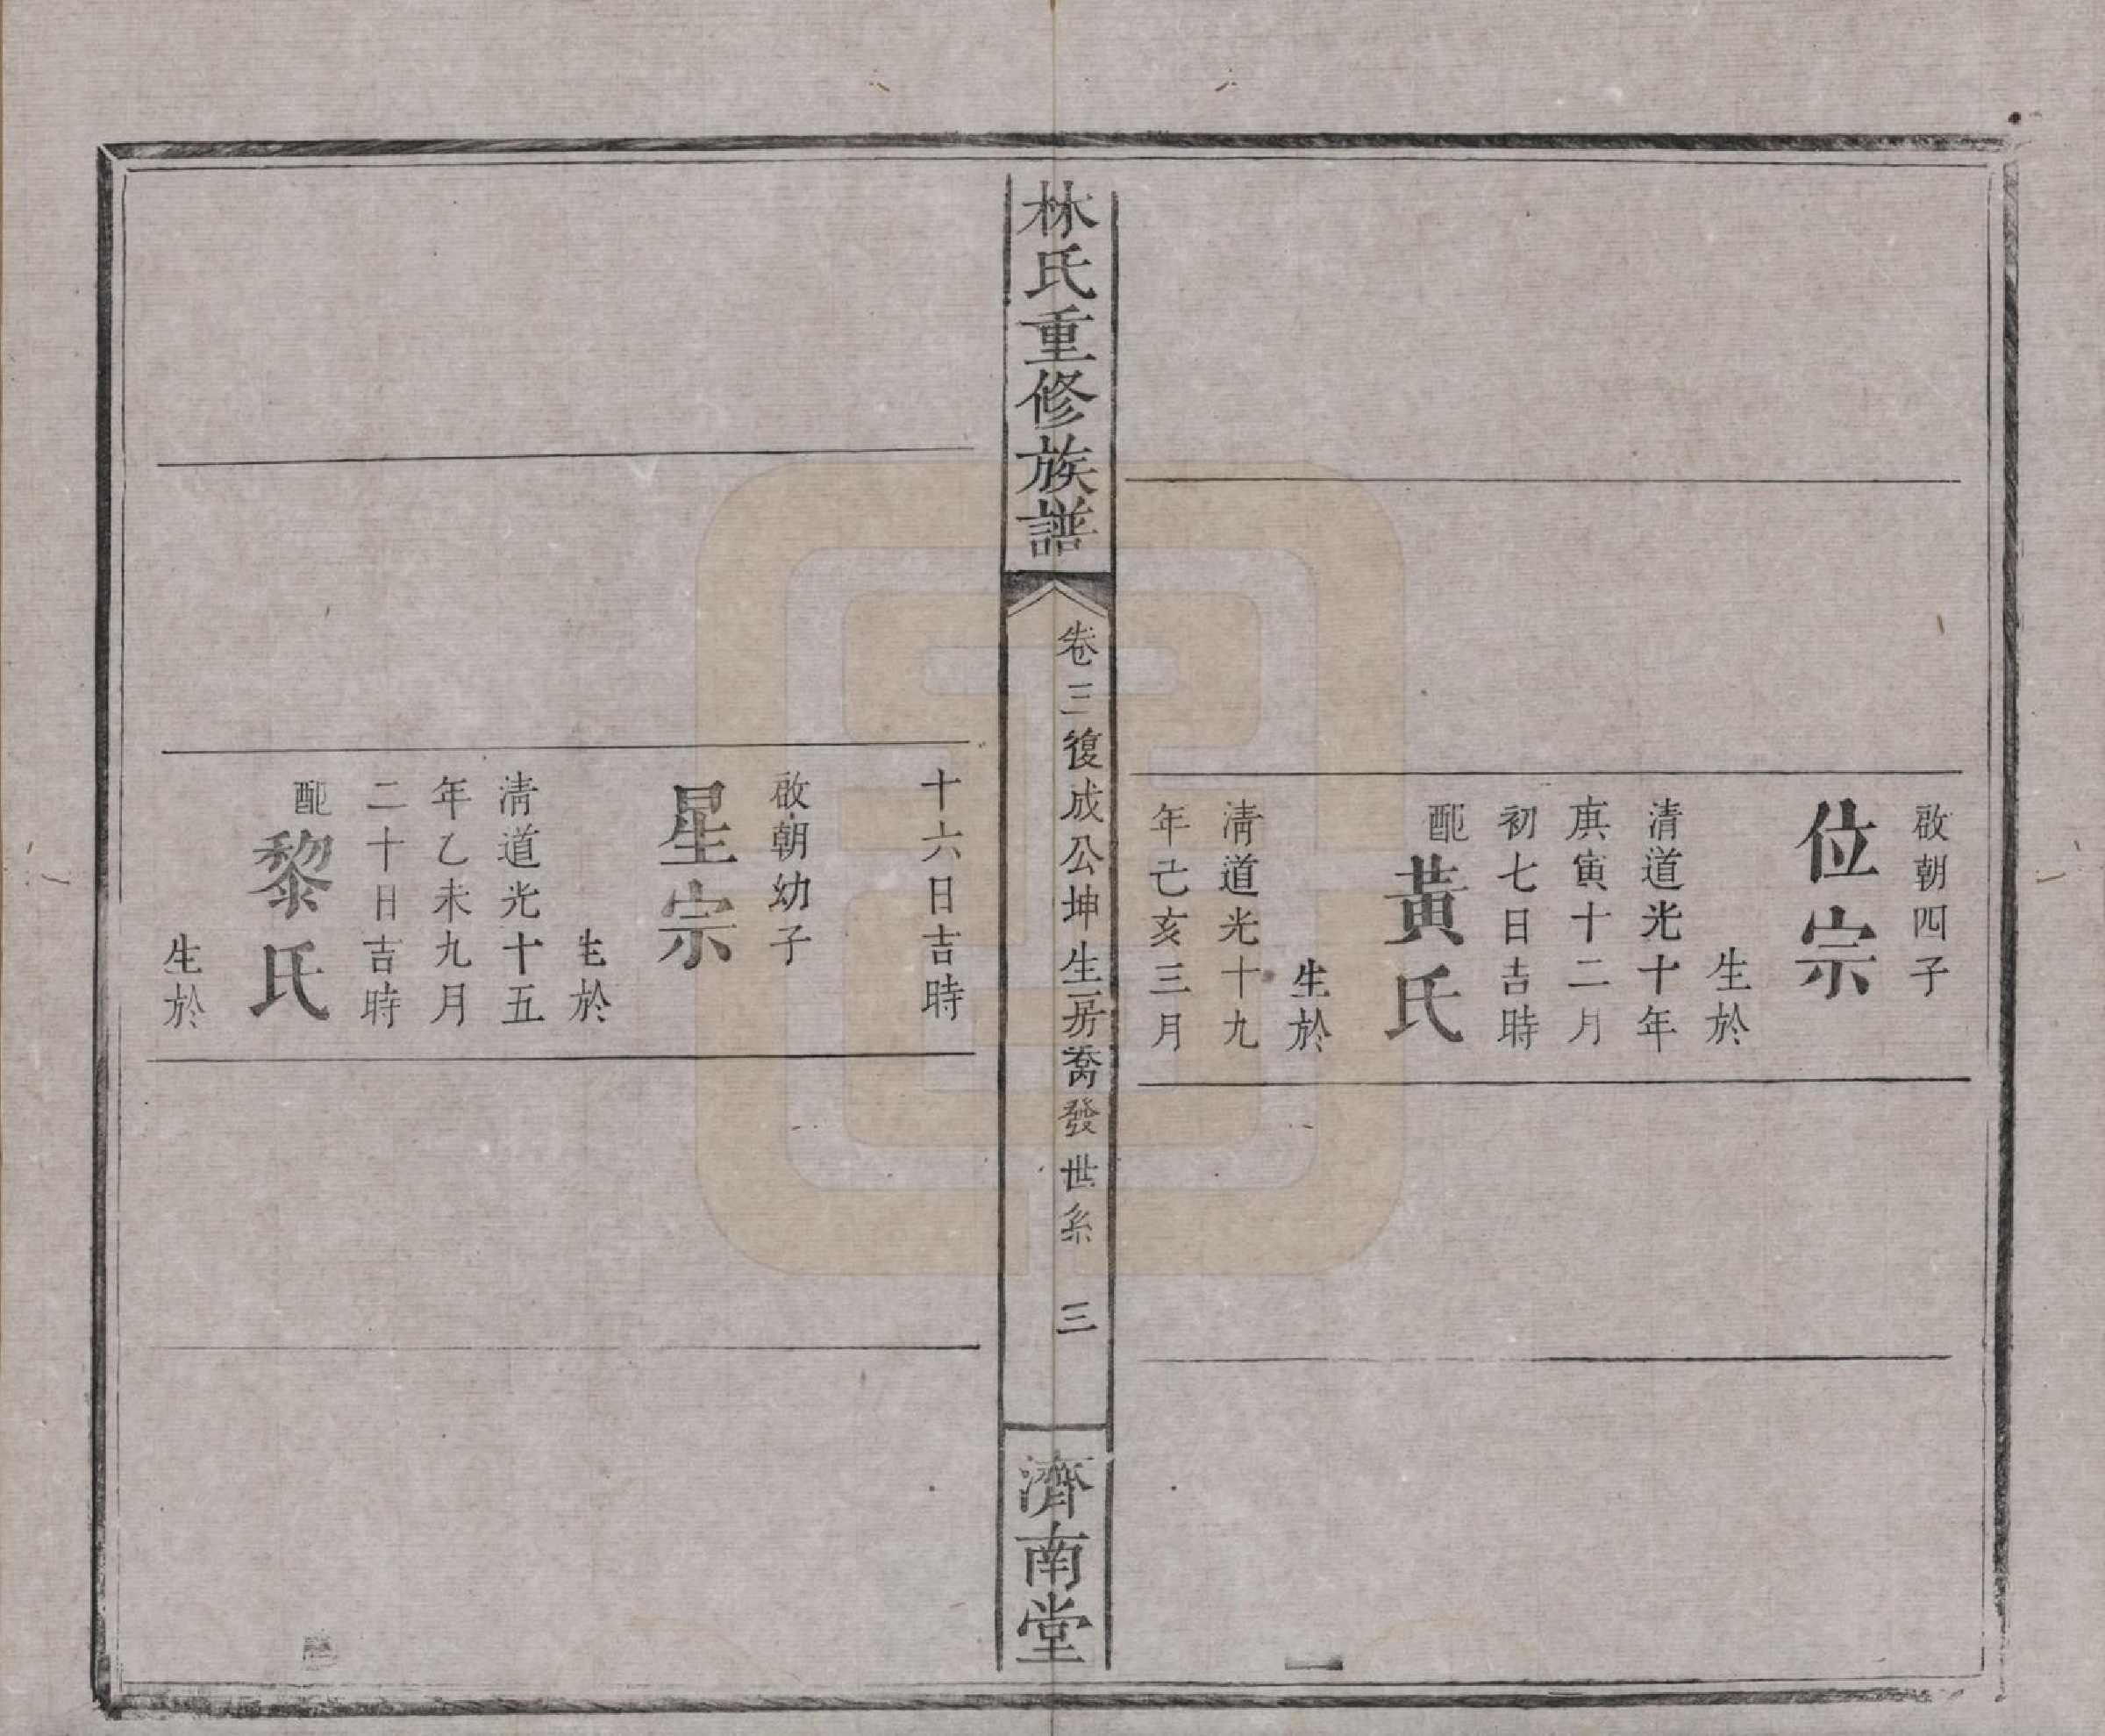 啟朝四子
位宗
生於
清道光十年
庚寅十二月
初七日吉時
配
黃氏
生於
清道光十九
年己亥三月
林氏重修族譜
卷三復成公坤生房喬發世系 三
濟南堂
十六日吉時
啟朝幼子
星宗
生於
清道光十五
年乙未九月
二十日吉時
配
黎氏
生於